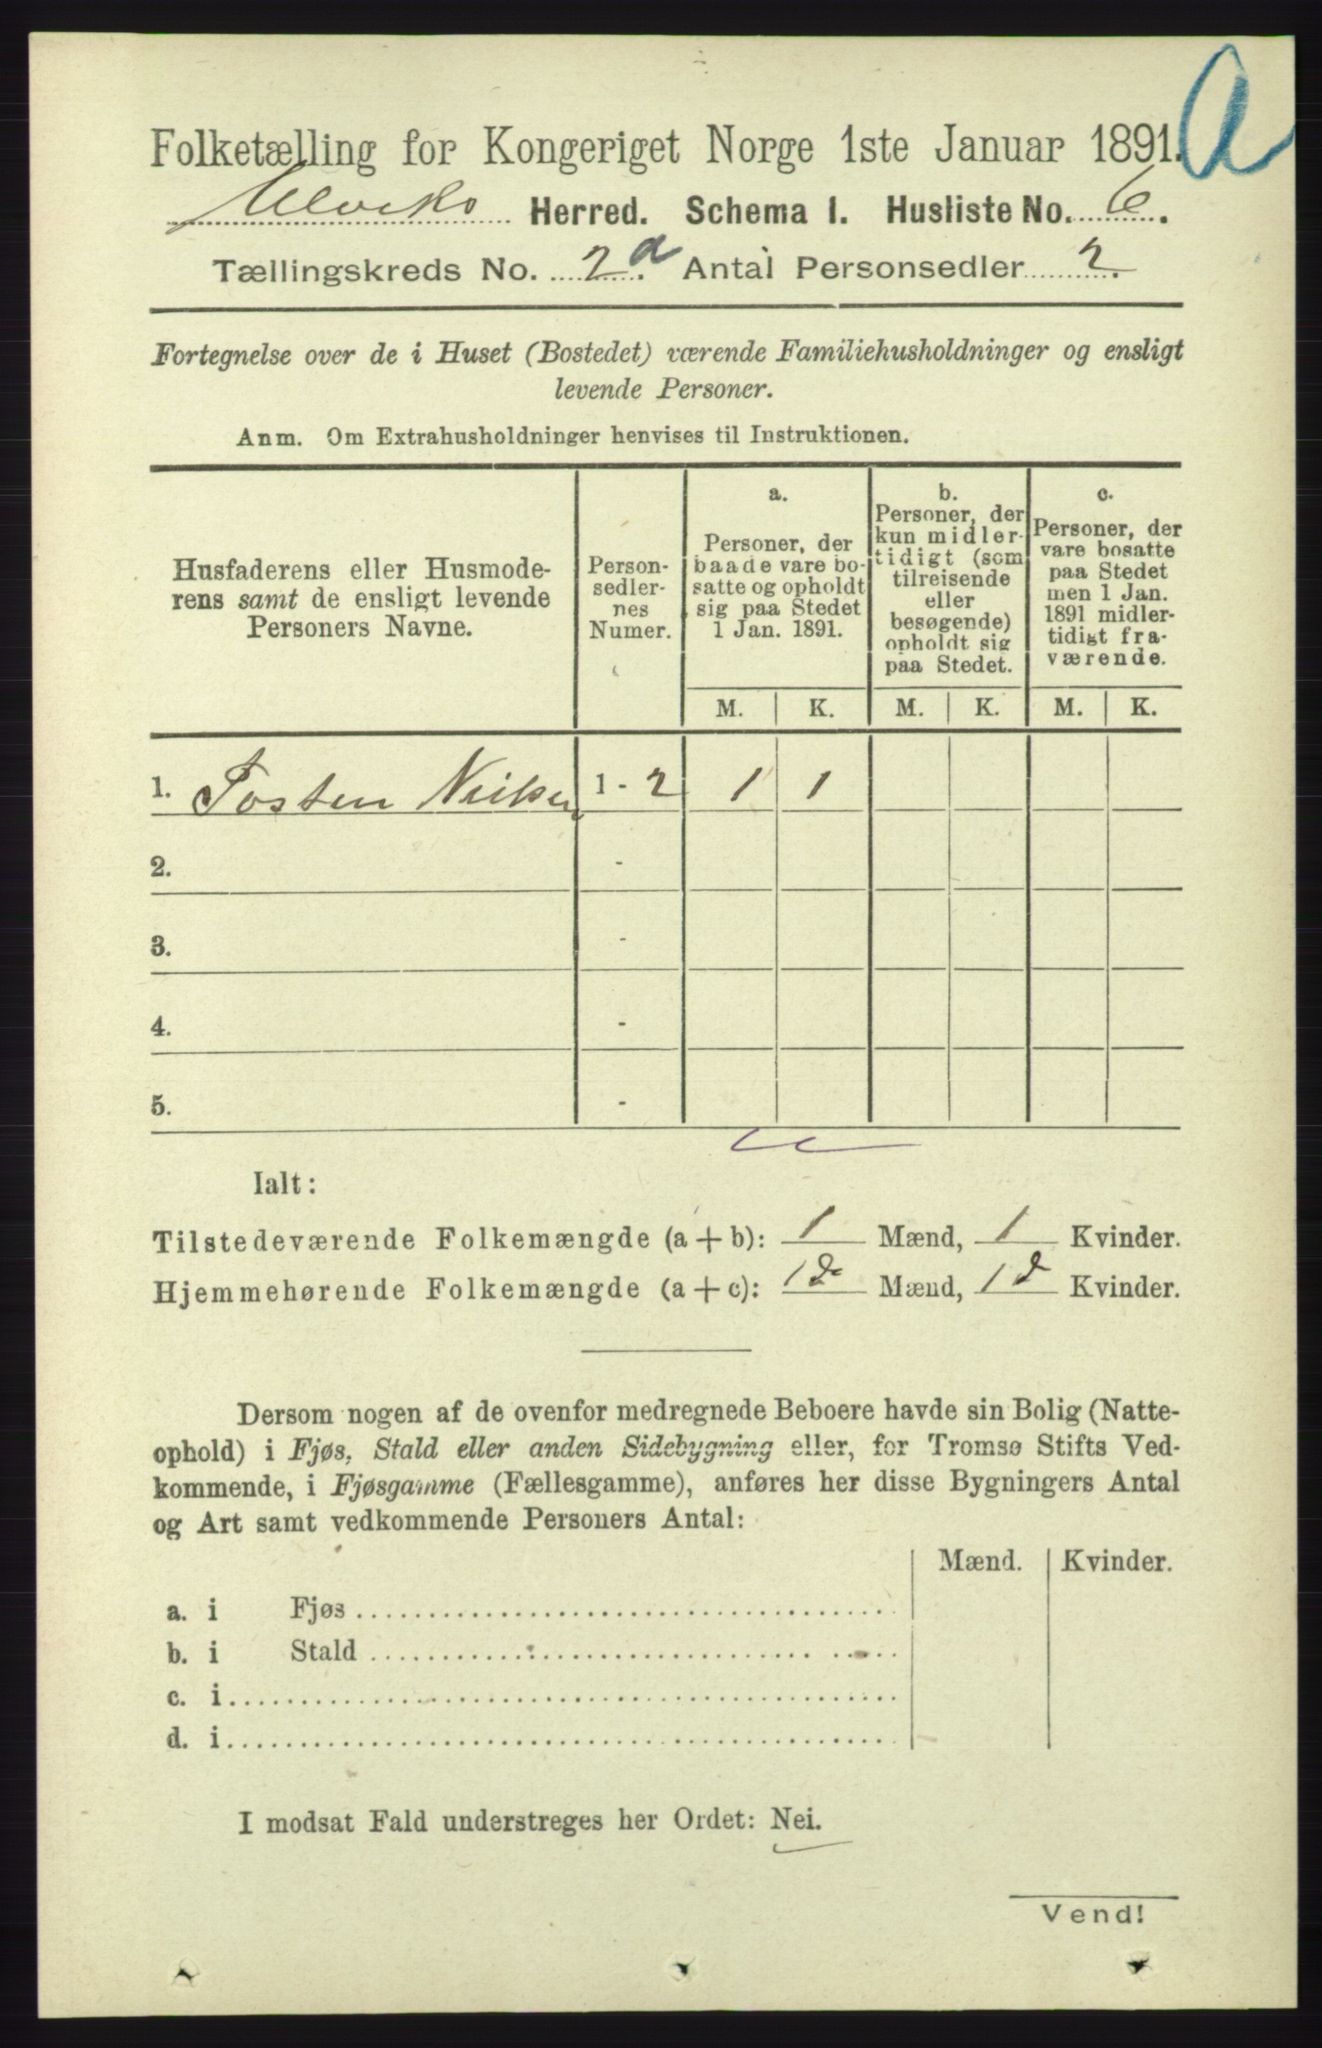 Folketælling for Kongeriget Norge 1ste Januar 1891.
a
Ulviks Herred. Schema 1. Husliste No. 6.
Tællingskreds No. 2a. Antal Personsedler 2.
Fortegnelse over de i Huset (Bostedet) værende Familiehusholdninger og ensligt
levende Personer.
Anm. Om Extrahusholdninger henvises til Instruktionen.
Husfaderens eller Husmode-
rens samt de ensligt levende
Personers Navne.
Person-
sedler-
nes
Numer.
a.
Personer, der
baade vare bo-
satte og opholdt
sig paa Stedet
1 Jan. 1891.
b.
Personer, der
kun midler-
tidigt (som
tilreisende
eller
besøgende)
opholdt sig
paa Stedet.
c.
Personer, der
vare bosatte
paa Stedet
men 1 Jan.
1891 midler-
tidigt fra-
værende.
M. K. M. K. M. K.
1. Tosten 1 - 2 1 1
2. -
3. -
4. -
5. -
Ialt:
Tilstedeværende Folkemængde (a + b): 1 Mænd, 1 Kvinder.
Hjemmehørende Folkemængde (a + c): 1 Mænd, 1 Kvinder.
Dersom nogen af de ovenfor medregnede Beboere havde sin Bolig (Natte-
ophold) i Fjøs, Stald eller anden Sidebygning eller, for Tromsø Stifts Ved-
kommende, i Fjøsgamme (Fællesgamme), anføres her disse Bygningers Antal
og Art samt vedkommende Personers Antal:
Mænd. Kvinder.
a. i Fjøs
b. i Stald
c. i
d. i
I modsat Fald understreges her Ordet: Nei.
Vend!